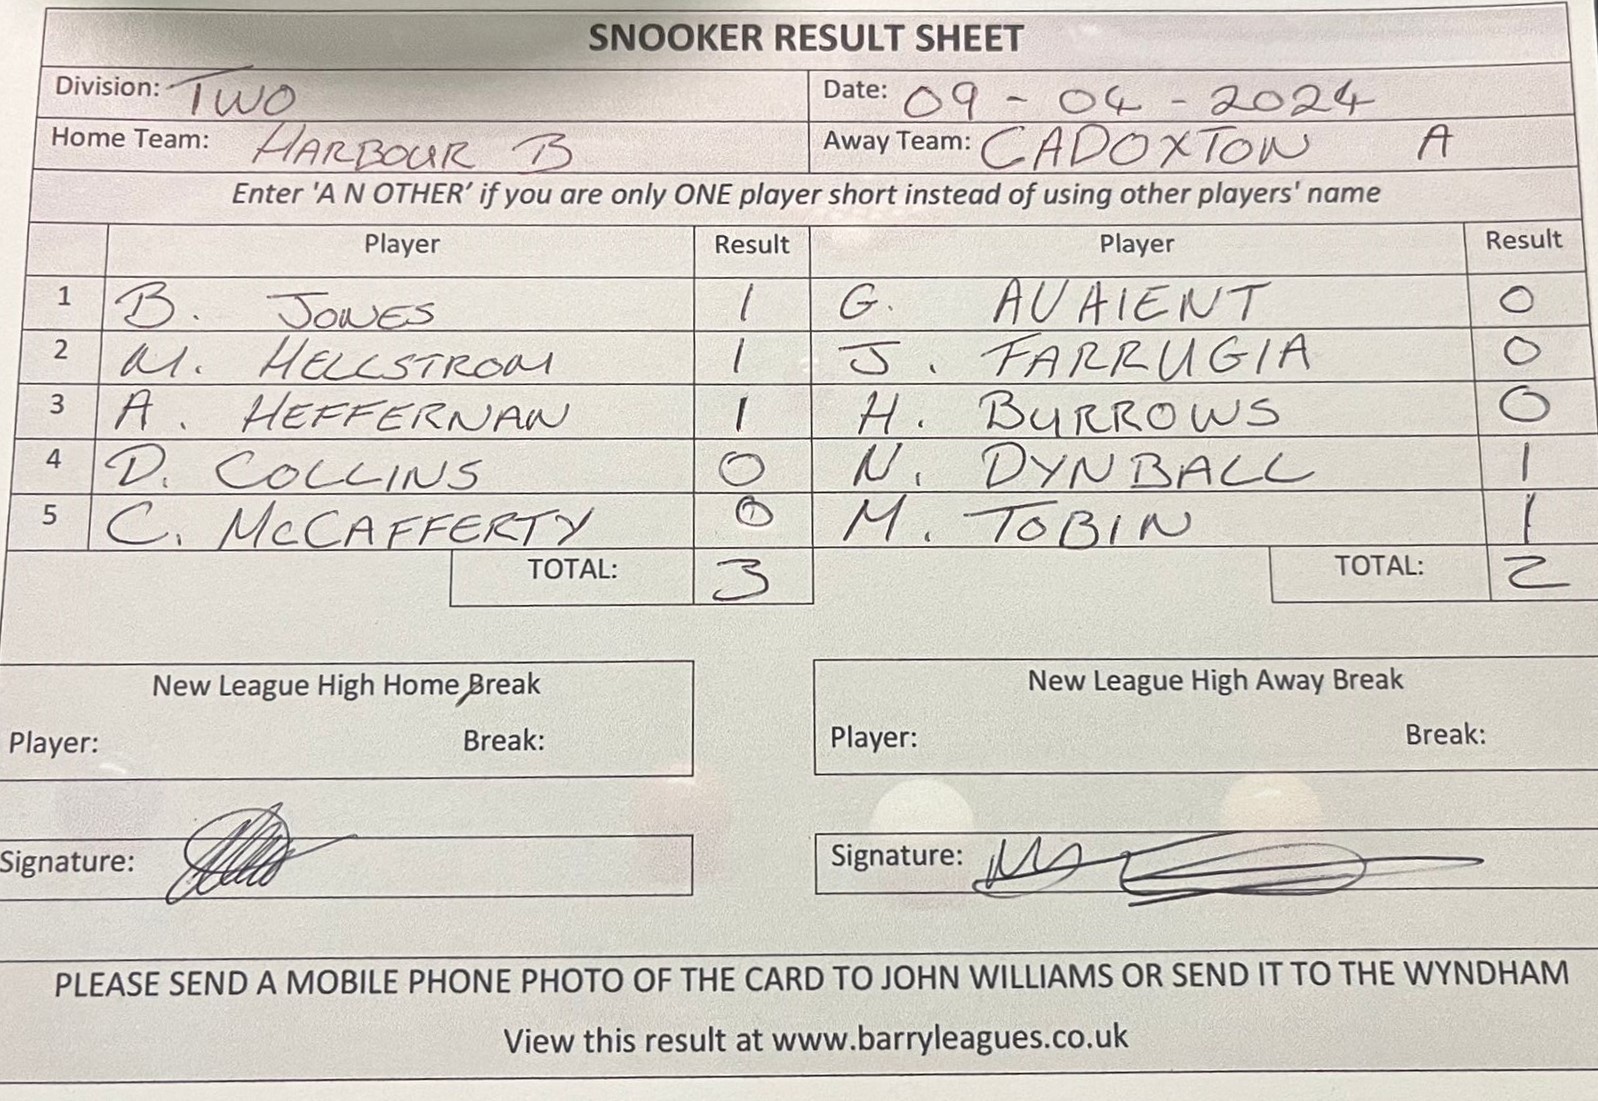 SNOOKER RESULT SHEET
Division: TWO Date: 09 - 04 - 2024
Home Team: HARBOUR B Away Team: CADOXTON A
Enter 'A N OTHER' if you are only ONE player short instead of using other players' name
Player Result Player Result
1 B. JONES 1 G. AVAIENT 0
2 M. HELLSTROM 1 J. FARRUGIA 0
3 A. HEFFERNAN 1 H. BURROWS 0
4 D. COLLINS 0 N. DYNBALL 1
5 C. McCAFFERTY 0 M. TOBIN 1
TOTAL: 3 TOTAL: 2
New League High Home Break New League High Away Break
Player: Break: Player: Break:
Signature: Signature:
PLEASE SEND A MOBILE PHONE PHOTO OF THE CARD TO JOHN WILLIAMS OR SEND IT TO THE WYNDHAM
View this result at www.barryleagues.co.uk